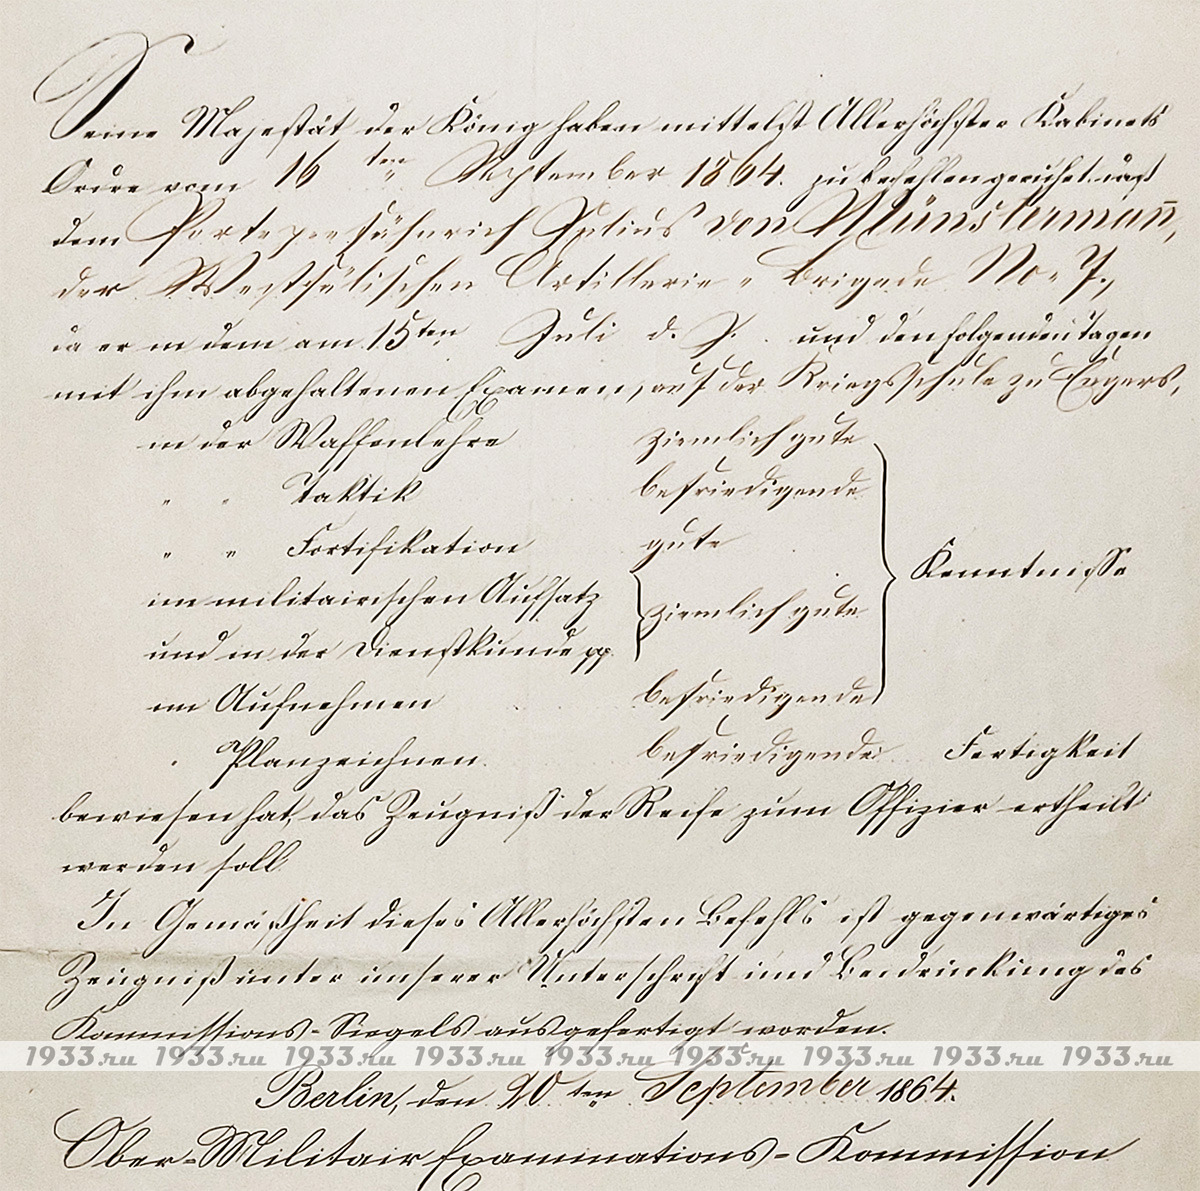 Seine Majestät der König haben mittelst Allerhöchster Kabinets
Ordre vom 16ten September 1864. zu befehlen geruhet, daß
dem Portepeefähnrich Julius von Münstermañ,
der Westfälischen Artillerie-Brigade No. 7.,
da er in dem am 15ten Juli d. J. und den folgenden Tagen
mit ihm abgehaltenen Examen, auf der Kriegsschule zu Engers,
in der Waffenlehre ziemlich gute
" " Taktik befriedigende
" " Fortifikation gute
Kenntnisse
im militairischen Aufsatz
ziemlich gute
und in der Dienstkunde pp.
im Aufnehmen befriedigende
" Planzeichnen befriedigende Fertigkeit
bewiesen hat, das Zeugniß der Reife zum Offizier ertheilt
werden soll.
In Gemäßheit dieses Allerhöchsten Befehls ist gegenwärtiges
Zeugniß unter unserer Unterschrift und Beidrückung des
Kommissions-Siegels ausgefertigt worden.
1933.ru 1933.ru 1933.ru 1933.ru 1933.ru 1933.ru 1933.ru 1933.ru 1933.ru
Berlin, den 20ten September 1864.
Ober-Militair Examinations-Kommission